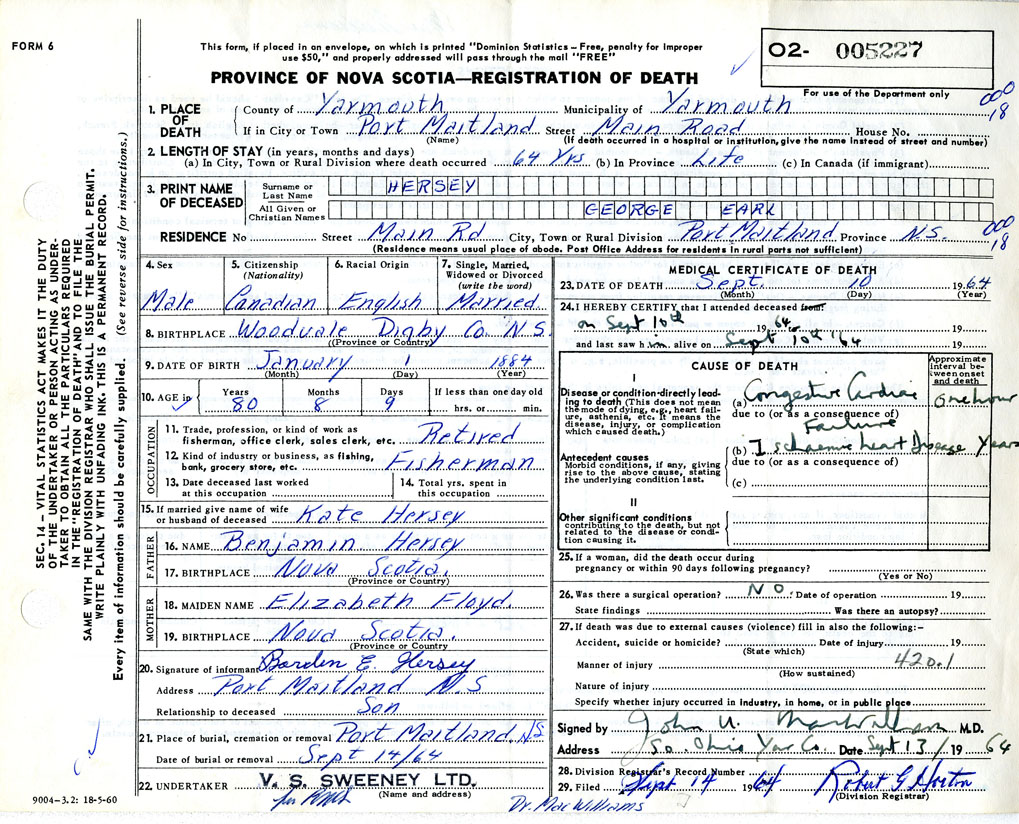 FORM 6
This form, if placed in an envelope, on which is printed "Dominion Statistics – Free, penalty for improper
use $50," and properly addressed will pass through the mail "FREE"
PROVINCE OF NOVA SCOTIA—REGISTRATION OF DEATH
O2- 005227
For use of the Department only
000
18
1. PLACE OF DEATH
County of Yarmouth Municipality of Yarmouth
If in City or Town Port Maitland Street Main Road House No.
(Name) (If death occurred in a hospital or institution, give the name instead of street and number)
2. LENGTH OF STAY (in years, months and days)
(a) In City, Town or Rural Division where death occurred 64 Yrs. (b) In Province Life (c) In Canada (if immigrant)
3. PRINT NAME OF DECEASED
Surname or Last Name HERSEY
All Given or Christian Names GEORGE EARL
000
18
RESIDENCE No. Street Main Rd City, Town or Rural Division Port Maitland Province N.S.
(Residence means usual place of abode. Post Office Address for residents in rural parts not sufficient)
4. Sex
Male
5. Citizenship (Nationality)
Canadian
6. Racial Origin
English
7. Single, Married, Widowed or Divorced (write the word)
Married
8. BIRTHPLACE Woodvale Digby Co. N.S.
(Province or Country)
9. DATE OF BIRTH January 1 1884
(Month) (Day) (Year)
10. AGE in Years Months Days If less than one day old
80 8 9 hrs. or min.
OCCUPATION
11. Trade, profession, or kind of work as
fisherman, office clerk, sales clerk, etc. Retired
12. Kind of industry or business, as fishing,
bank, grocery store, etc. Fisherman
13. Date deceased last worked
at this occupation
14. Total yrs. spent in
this occupation
15. If married give name of wife
or husband of deceased Kate Hersey
FATHER
16. NAME Benjamin Hersey
17. BIRTHPLACE Nova Scotia.
(Province or Country)
MOTHER
18. MAIDEN NAME Elizabeth Floyd.
19. BIRTHPLACE Nova Scotia.
(Province or Country
20. Signature of informant Borden E. Hersey
Address Port Maitland N.S
Relationship to deceased Son
21. Place of burial, cremation or removal Port Maitland, N.S
Date of burial or removal Sept 14/64
22. UNDERTAKER V. S. SWEENEY LTD.
(Name and address)
MEDICAL CERTIFICATE OF DEATH
23. DATE OF DEATH Sept. 10 1964
(Month) (Day) (Year)
24. I HEREBY CERTIFY that I attended deceased from:
on Sept 10th 1964 19
and last saw him alive on Sept 10th '64 19
CAUSE OF DEATH
Approximate interval between onset and death
I
Disease or condition directly leading to death (This does not mean the mode of dying, e.g., heart failure, asthenia, etc. It means the disease, injury, or complication which caused death.)
(a) Congestive Cardiac one hour
due to (or as a consequence of)
Failure
Antecedent causes
Morbid conditions, if any, giving rise to the above cause, stating the underlying condition last.
(b) Ischaemic heart Disease Years
due to (or as a consequence of)
(c)
II
Other significant conditions
contributing to the death, but not related to the disease or condition causing it.
25. If a woman, did the death occur during
pregnancy or within 90 days following pregnancy?
(Yes or No)
26. Was there a surgical operation? No. Date of operation 19
State findings Was there an autopsy?
27. If death was due to external causes (violence) fill in also the following:-
Accident, suicide or homicide? Date of injury 19
(State which)
Manner of injury 420.1
(How sustained)
Nature of injury
Specify whether injury occurred in industry, in home, or in public place
Signed by John U. MacWilliam M.D.
Address So. Ohio Yar Co. Date Sept 13/ 19 64
28. Division Registrar's Record Number
29. Filed Sept 14 1964 Robert G Horton
(Division Registrar)
9004-3.2: 18-5-60
Dr. MacWilliams
SEC. 14 – VITAL STATISTICS ACT MAKES IT THE DUTY
OF THE UNDERTAKER OR PERSON ACTING AS UNDER-
TAKER TO OBTAIN ALL THE PARTICULARS REQUIRED
IN THE "REGISTRATION OF DEATH" AND TO FILE THE
SAME WITH THE DIVISION REGISTRAR WHO SHALL ISSUE THE BURIAL PERMIT.
WRITE PLAINLY WITH UNFADING INK. THIS IS A PERMANENT RECORD.
Every item of information should be carefully supplied. (See reverse side for instructions.)